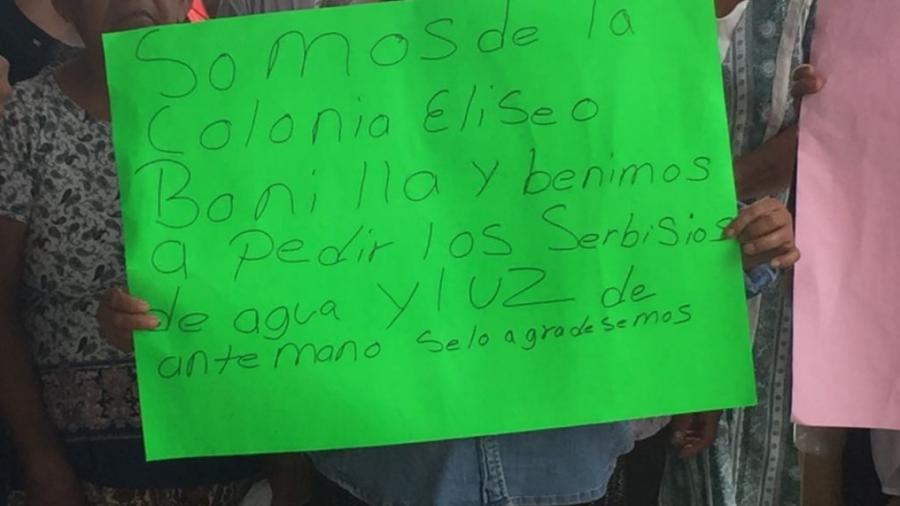 Somos de la
Colonia Eliseo
Bonilla y benimos
a Pedir los Serbisios
de agua y luz de
ante mano se lo agradesemos